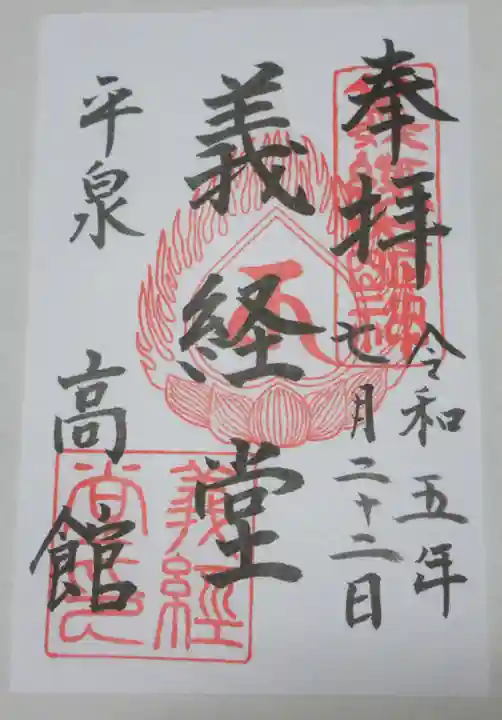 奉拝
令和五年
七月二十二日
義経堂
平泉 高館
義経